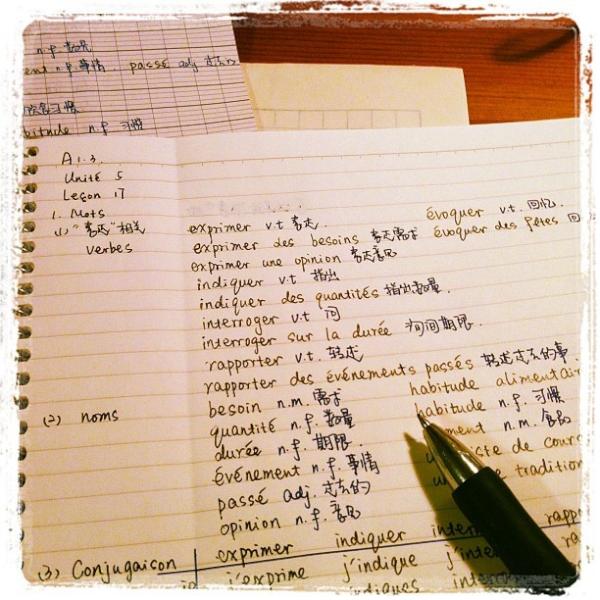 n.f. 数量
ent n.f. 事情. passé adj. 过去的
饮食习惯
bitude n.f. 习惯
A1.3.
Unité 5
Leçon 17
1. Mots
(1) "表达"相关 exprimer v.t. 表达 évoquer v.t. 回忆.
verbes exprimer des besoins 表达需求 évoquer des fêtes 回
exprimer une opinion 表达意见
indiquer v.t. 指出
indiquer des quantités 指出数量.
interroger v.t 问
interroger sur la durée 询问期限.
rapporter v.t. 转述
rapporter des événements passés 转述过去的事.
(2) noms besoin n.m. 需求 habitude alimentair
quantité n.f. 数量 habitude n.f. 习惯
durée n.f. 期限. ment n.m. 食品
événement n.f. 事情 ste de cours
passé adj. 过去的 tradition
opinion n.f. 意见
exprimer indiquer inter rappo
(3) Conjugaison j'exprime j'indique j'inte ra
indiques inter